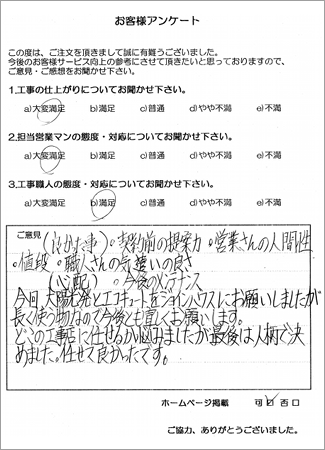 お客様アンケート
この度は、ご注文を頂きまして誠に有難うございました。
今後のお客様サービス向上の参考にさせて頂きたいと思っておりますので、
ご意見・ご感想をお聞かせ下さい。
1.工事の仕上がりについてお聞かせ下さい。
a)大変満足 b)満足 c)普通 d)やや不満 e)不満
2.担当営業マンの態度・対応についてお聞かせ下さい。
a)大変満足 b)満足 c)普通 d)やや不満 e)不満
3.工事職人の態度・対応についてお聞かせ下さい。
a)大変満足 b)満足 c)普通 d)やや不満 e)不満
ご意見 (良かった事)。契約前の提案力。営業さんの人間性
。値段。職人さんの気遣いの良さ
(心配)。今後のメンテナンス
今回、太陽光発電とエコキュートをジョインハウスにお願いしましたが
長く使う物なので今後とも宜しくお願いします。
どこの工事店に任せるか悩みましたが最後は人柄で決
めました。任せて良かったです。
ホームページ掲載 可 否
ご協力、ありがとうございました。